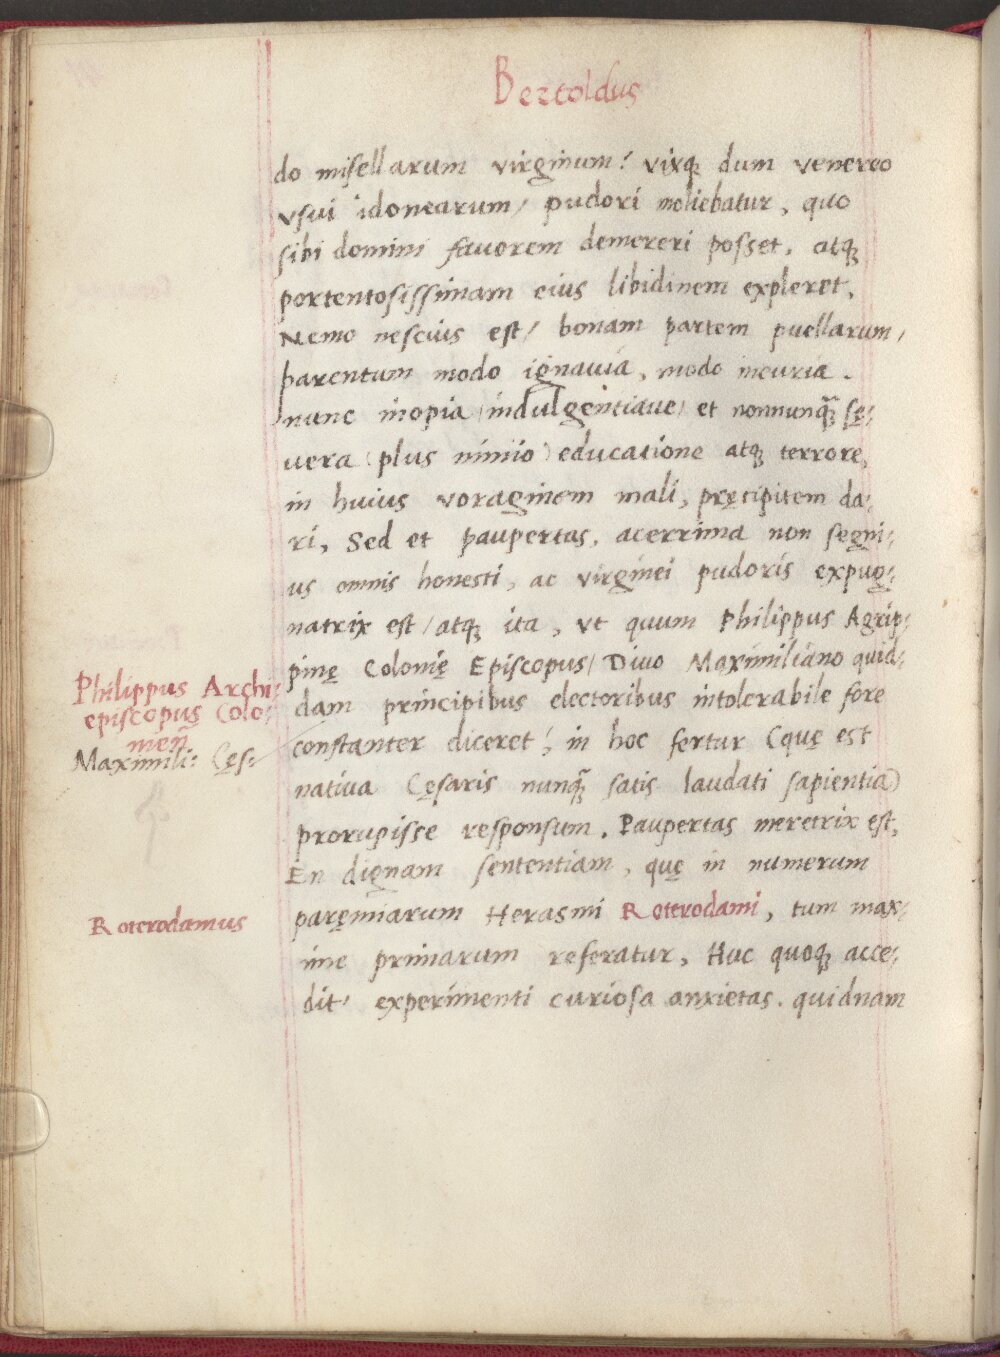 Bertoldus
do misellarum virginum! vixq dum venereo
vsui idonearum/ pudori moliebatur, quo
sibi domini fauorem demereri posset, atq
portentosissimam eius libidinem expleret.
Nemo nescius est/ bonam partem puellarum/
parentum modo ignauia, modo incuria.
nunc inopia (indulgentiaue) et nonnunq̄ sę-
uera (plus nimio) educatione atq terrore,
in huius voraginem mali, pręcipitem da-
ri, Sed et paupertas, acerrima non segni-
us omnis honesti, ac virginei pudoris expug-
natrix est/ atq ita, vt quum Philippus Agrip-
pinę Colonię Episcopus/ Diuo Maximiliano quid-
dam principibus electoribus intolerabile fore
constanter diceret/ in hoc fertur (quę est
natiua Cęsaris nunq̄ satis laudati sapientia)
prorupisse responsum. Paupertas meretrix est,
En dignam sententiam, quę in numerum
paręmiarum Herasmi Roterodami, tum max-
ime primarum referatur, Huc quoq acce-
dit experimenti curiosa anxietas. quidnam
Philippus Archi-
episcopus Colo-
men̄
Maximili: Cęs:
Roterodamus